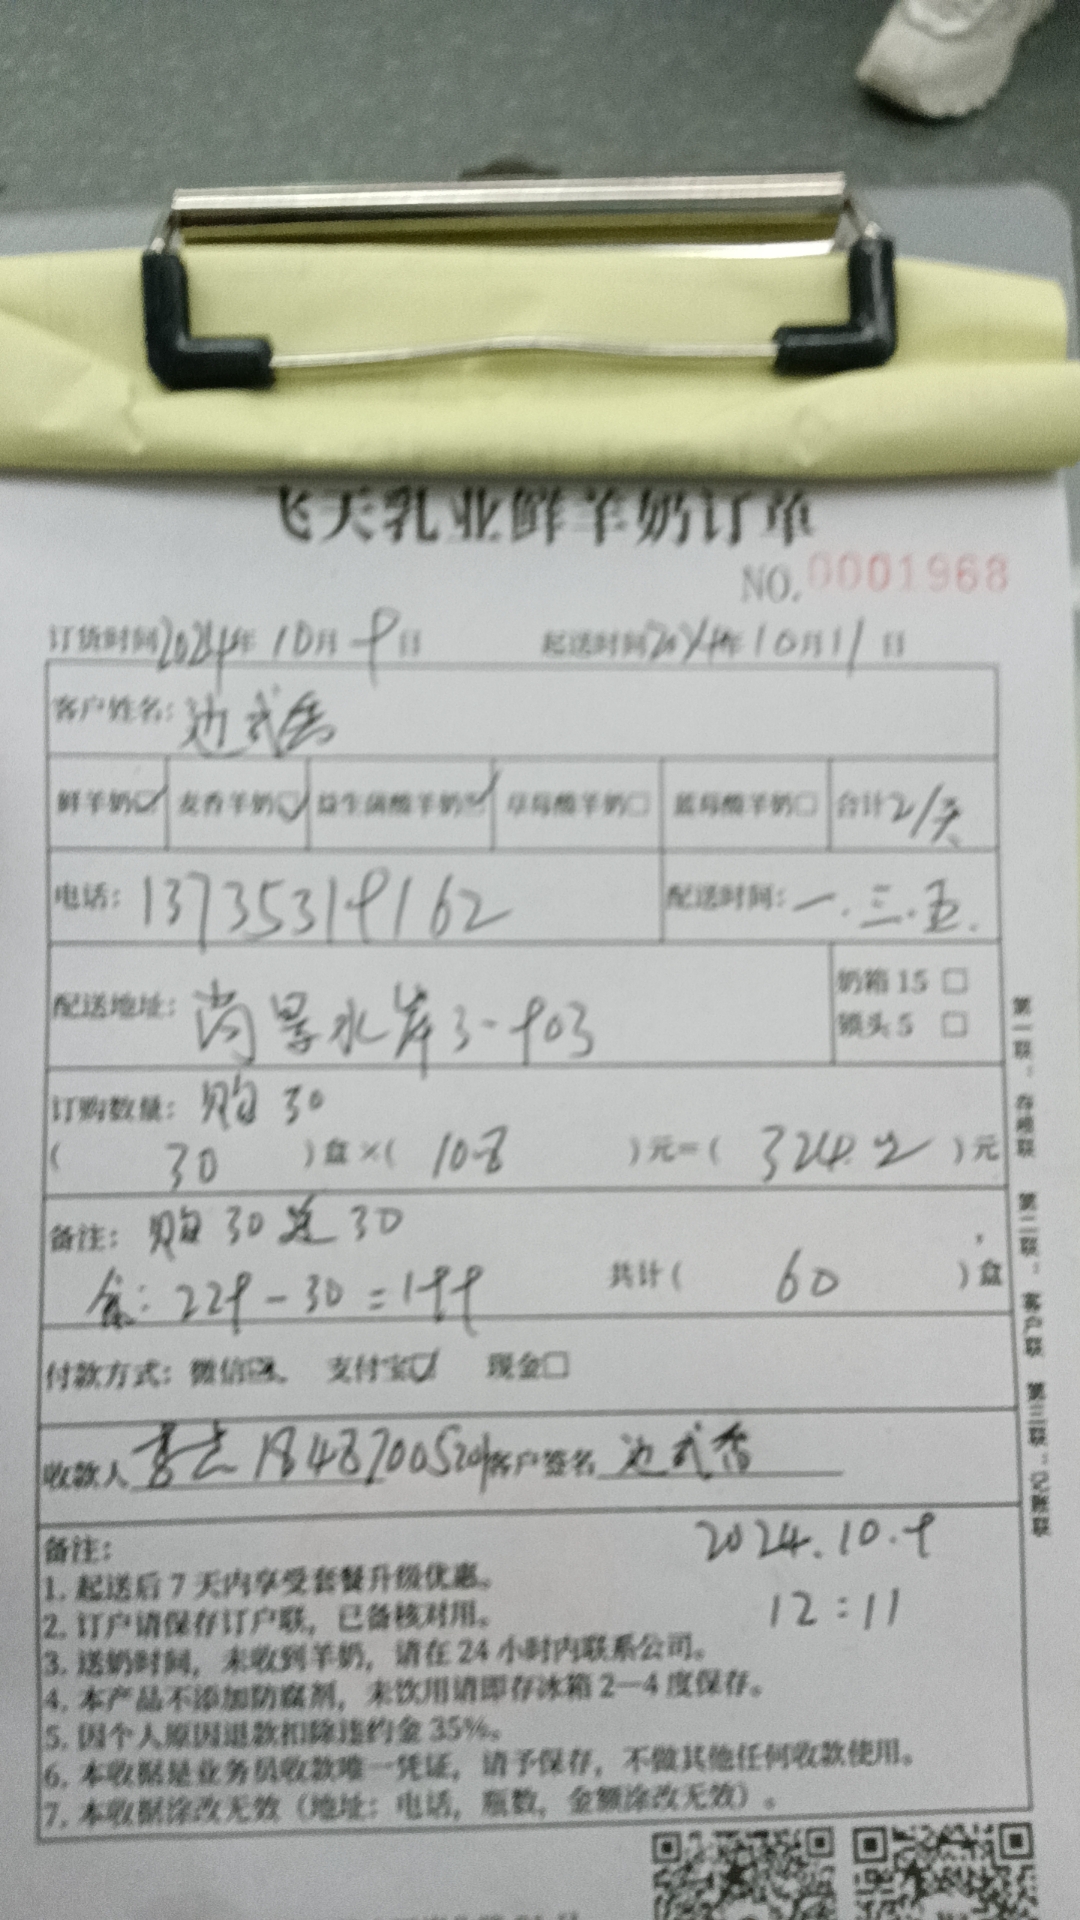 飞天乳业鲜羊奶订单
NO.0001968
订货时间2024年10月9日 起送时间2024年10月11日
客户姓名:边武香
鲜羊奶☑ 麦香羊奶☑ 益生菌酸羊奶☑ 草莓酸羊奶□ 蓝莓酸羊奶□ 合计2/天
电话:13735319162 配送时间:一.三.五.
配送地址:尚景水岸3-903 奶箱15 □
锁头5 □
订购数量:购30
(30)盒×(10.8)元=(324元)元
备注:购30送30
余:229-30=199 共计(60)盒
付款方式:微信☑ 支付宝☑ 现金□
收款人 18487005201 客户签名 边武香
备注: 2024.10.9
12:11
1. 起送后7天内享受套餐升级优惠。
2. 订户请保存订户联,已备核对用。
3. 送奶时间,未收到羊奶,请在24小时内联系公司。
4. 本产品不添加防腐剂,未饮用请即存冰箱2—4度保存。
5. 因个人原因退款扣除违约金35%。
6. 本收据是业务员收款唯一凭证,请予保存,不做其他任何收款使用。
7. 本收据涂改无效(地址:电话,瓶数,金额涂改无效)。
第一联:存根联 第二联:客户联 第三联:记账联